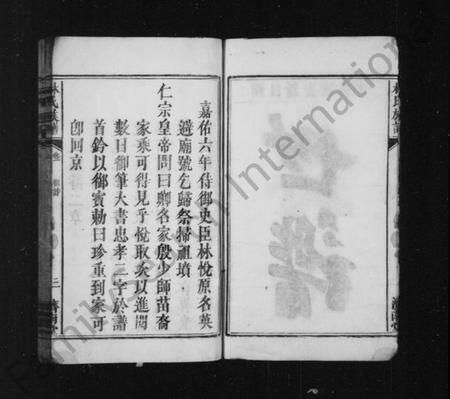 嘉佑六年侍御史臣林悅原名英
避廟號乞歸祭掃祖墳
仁宗皇帝問曰卿名家殷少師苗裔
家乘可得見乎悅取次以進閱
數日御筆大書忠孝二字於譜
首鈐以御寶勅曰珍重到家可
卽回京
林氏族譜
卷
三
濟南堂
林氏族譜
濟南堂
Family International